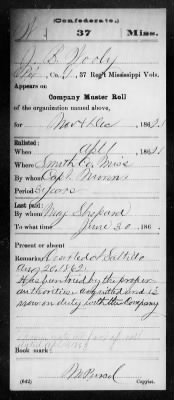 (Confederate.)
37 Miss.
37 Reg't Mississippi Vols.
Appears on
Company Muster Roll
of the organization named above,
for Nov & Dec, 1862.
Enlisted:
When Apl 1, 1862.
Where Smith Co, Miss
By whom Capt.
Period 3 years
Last paid:
By whom Maj Shepard
To what time June 30, 186
Present or absent
Remarks: Saltillo
Aug 20 1862
Has been tried by the proper
authorities acquitted and is
now on duty with the company
Book mark:
(642) Copyist.